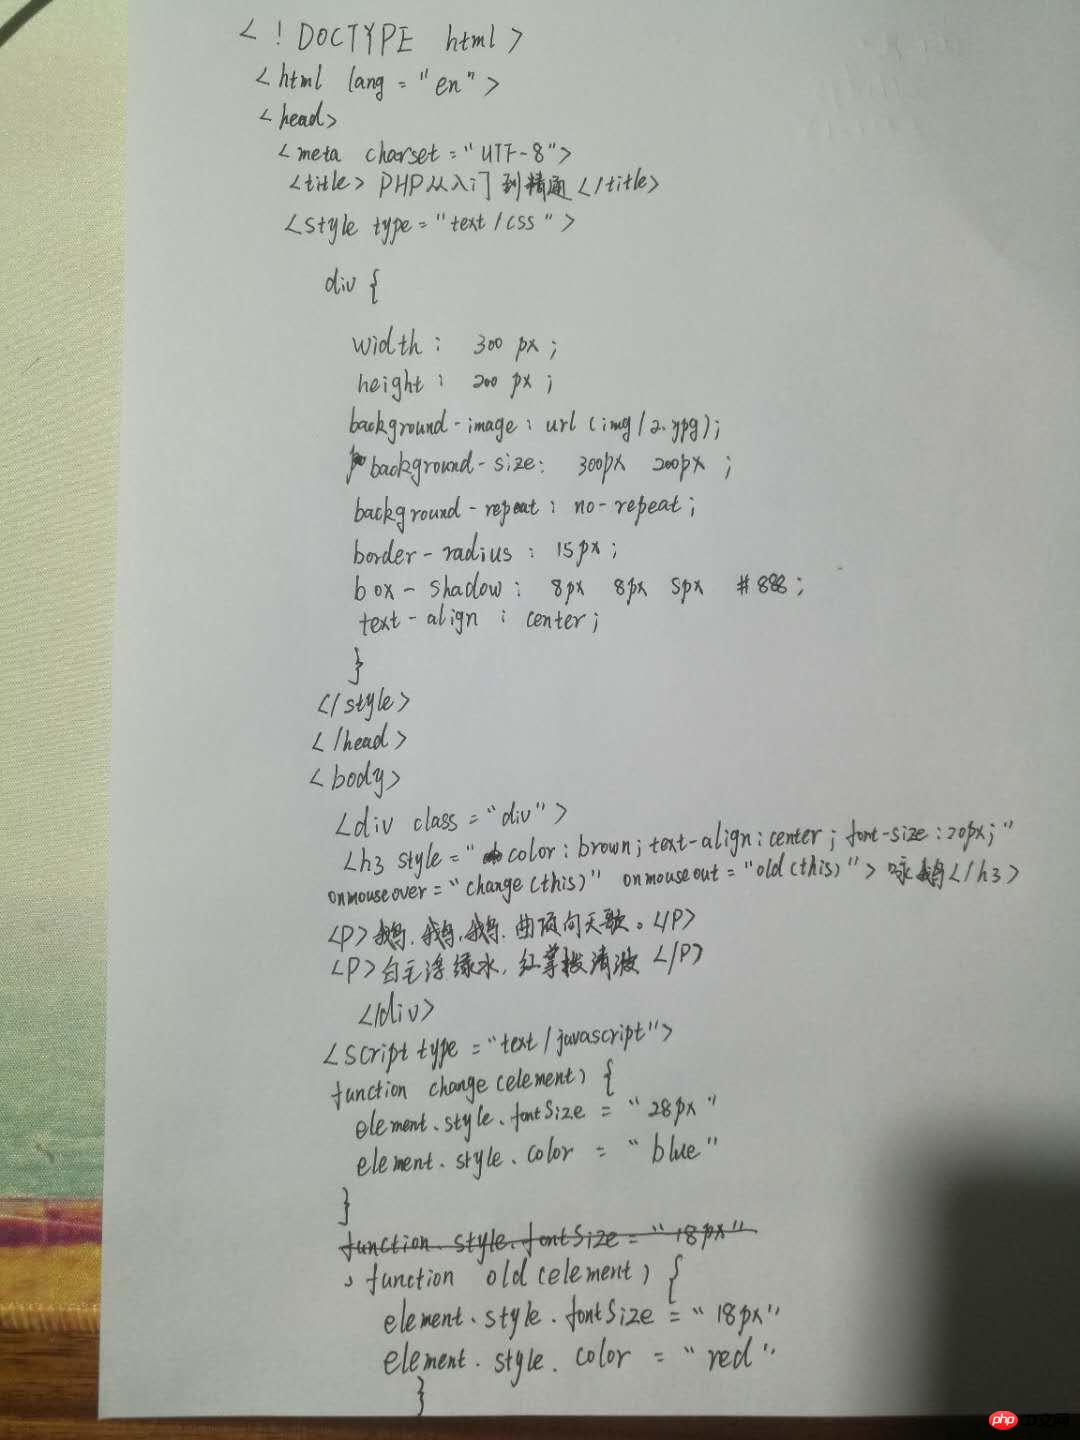 <!DOCTYPE html>
<html lang="en">
<head>
<meta charset="UTF-8">
<title>PHP从入门到精通</title>
<style type="text/css">
div {
width: 300px;
height: 200px;
background-image: url(img/2.jpg);
background-size: 300px 200px;
background-repeat: no-repeat;
border-radius: 15px;
box-shadow: 8px 8px 5px #888;
text-align: center;
}
</style>
</head>
<body>
<div class="div">
<h3 style="color:brown;text-align:center;font-size:20px;"
onmouseover="change(this)" onmouseout="old(this)">咏鹅</h3>
<P>鹅.鹅.鹅.曲项向天歌。</P>
<P>白毛浮绿水,红掌拨清波</P>
</div>
<script type="text/javascript">
function change(element) {
element.style.fontSize = "28px"
element.style.color = "blue"
}
function.style.fontSize = "18px"
function old(element) {
element.style.fontSize = "18px"
element.style.color = "red"
}
php中文网